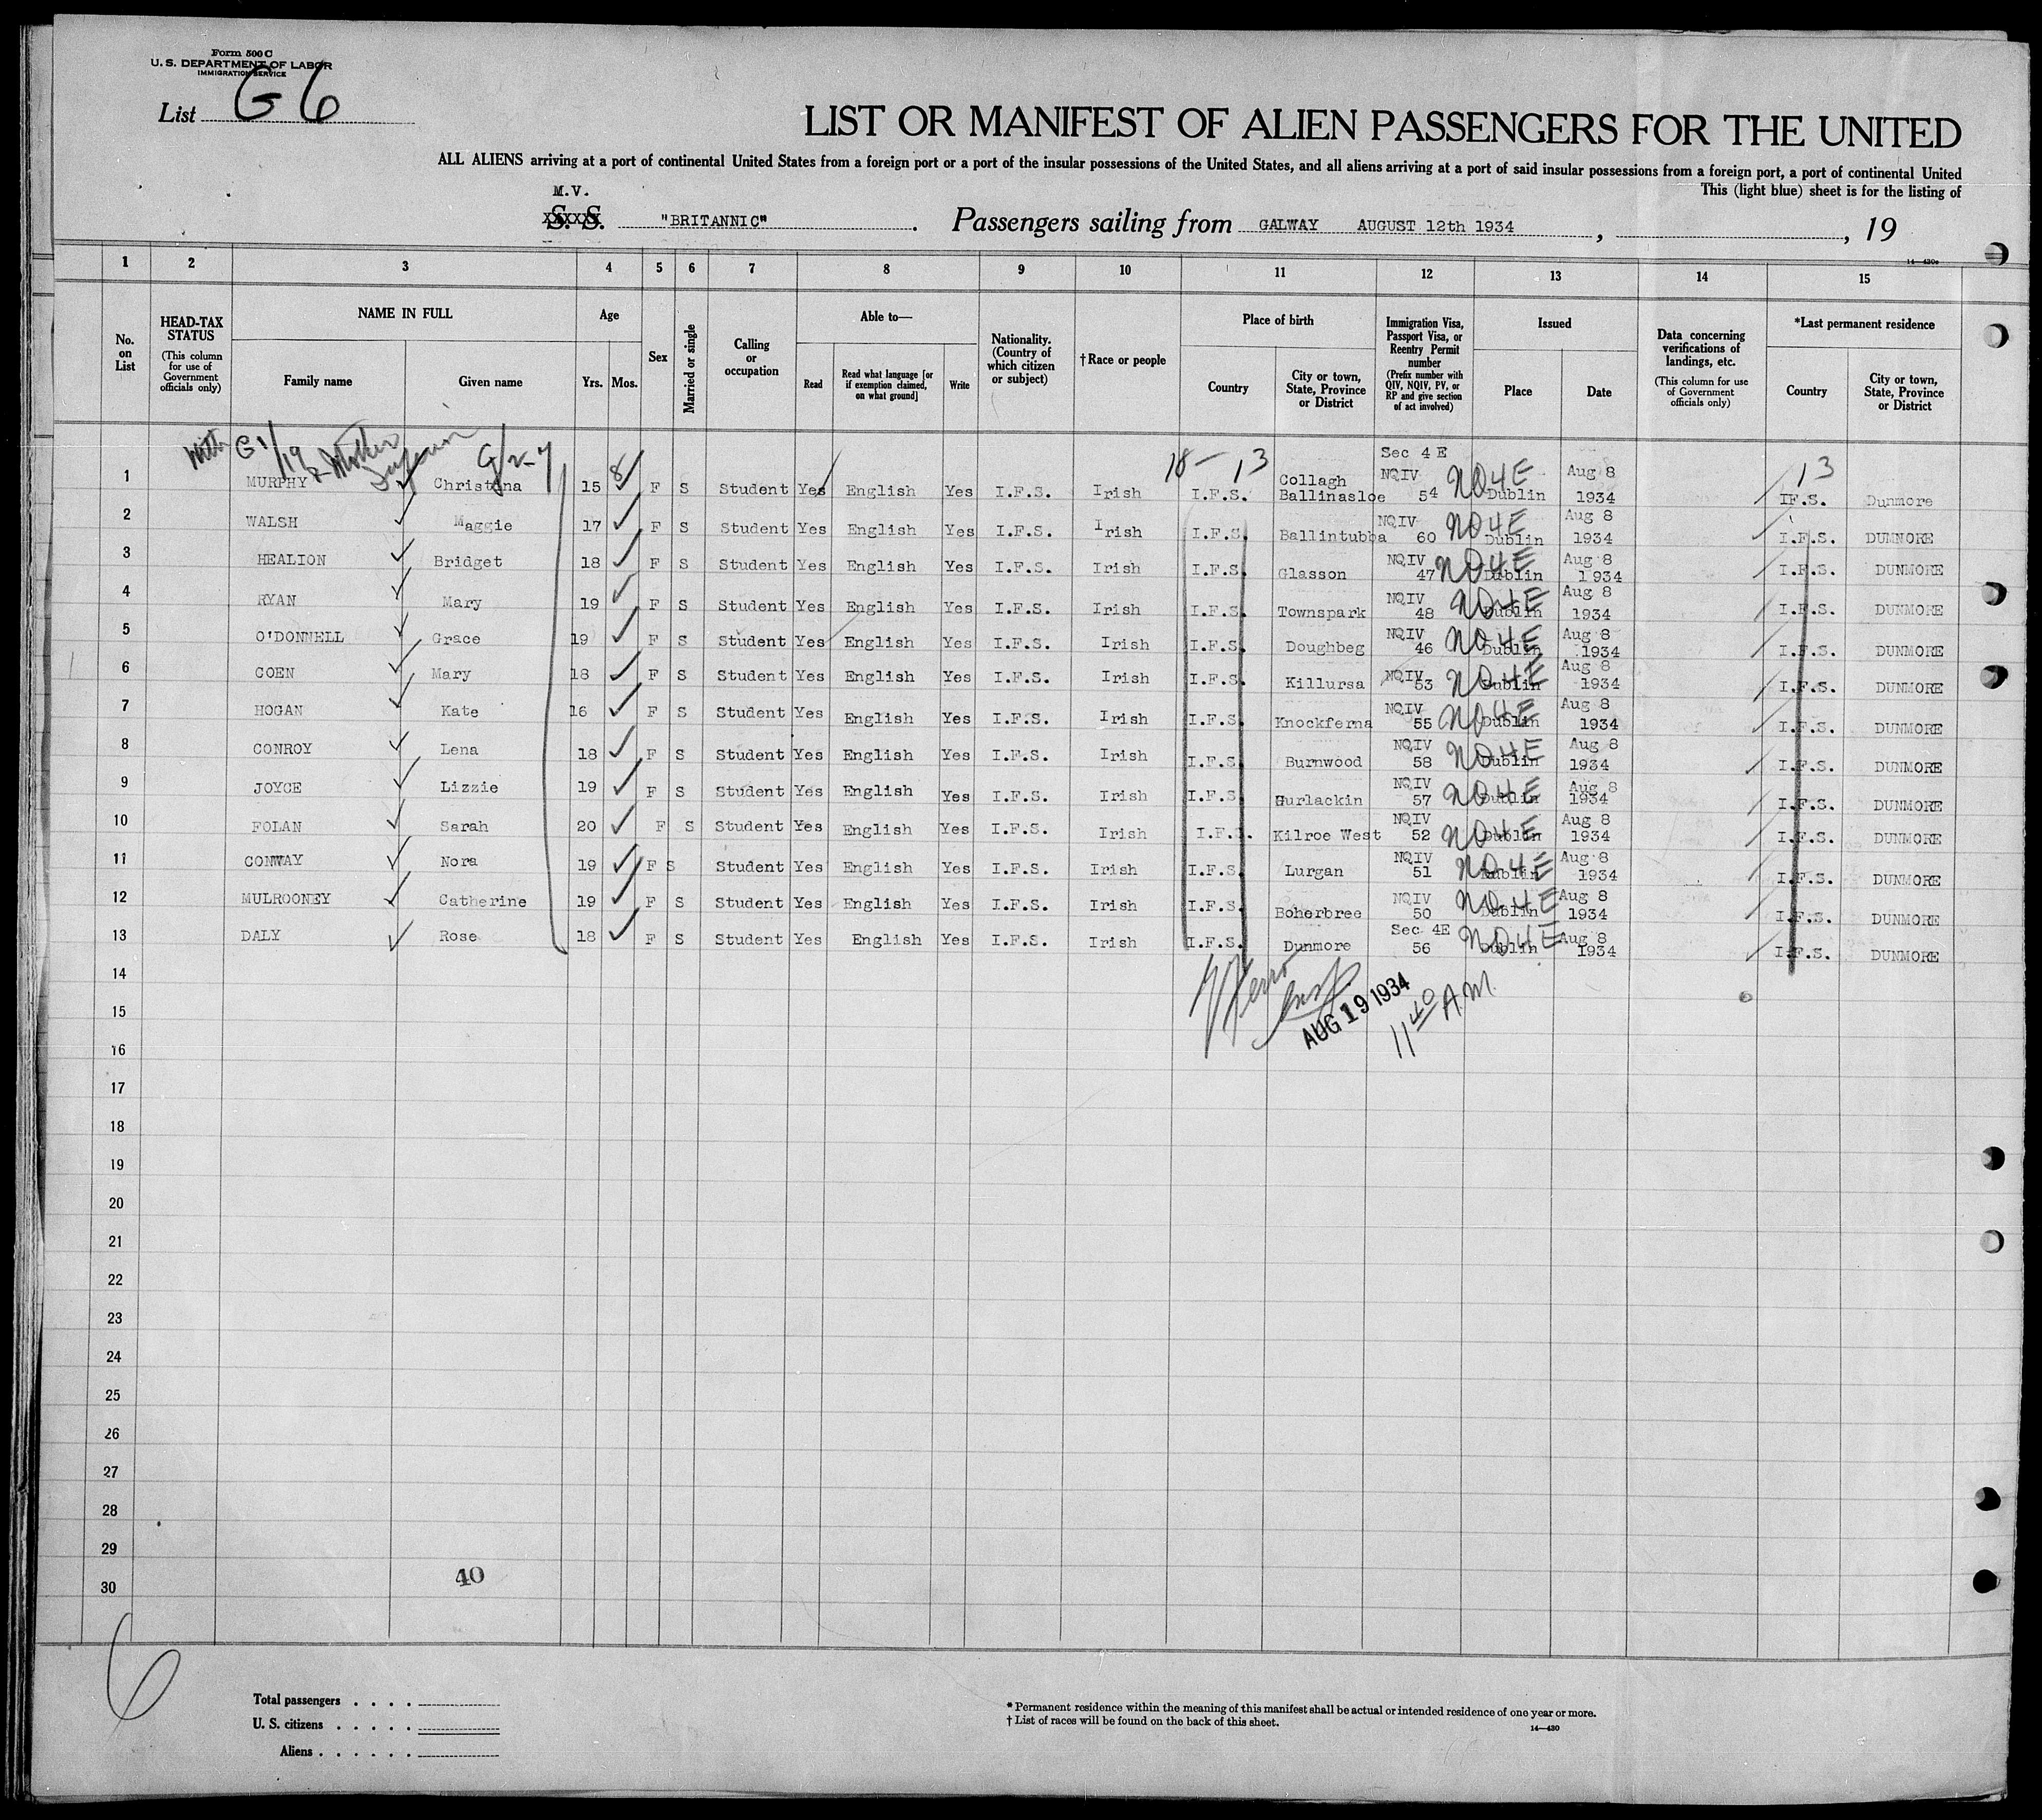 Form 500 C
U. S. DEPARTMENT OF LABOR
IMMIGRATION SERVICE
List G 6
LIST OR MANIFEST OF ALIEN PASSENGERS FOR THE UNITED
ALL ALIENS arriving at a port of continental United States from a foreign port or a port of the insular possessions of the United States, and all aliens arriving at a port of said insular possessions from a foreign port, a port of continental United
This (light blue) sheet is for the listing of
M.V.
S. S. "BRITANNIC". Passengers sailing from GALWAY AUGUST 12th 1934, , 19
14—430a
1 2 3 4 5 6 7 8 9 10 11 12 13 14 15
No. on List
HEAD-TAX STATUS (This column for use of Government officials only)
NAME IN FULL
Family name Given name
Age
Yrs. Mos.
Sex
Married or single
Calling or occupation
Able to—
Read Read what language [or if exemption claimed, on what ground] Write
Nationality. (Country of which citizen or subject)
†Race or people
Place of birth
Country City or town, State, Province or District
Immigration Visa, Passport Visa, or Reentry Permit number (Prefix number with QIV, NQIV, PV, or RP and give section of act involved)
Issued
Place Date
Data concerning verifications of landings, etc. (This column for use of Government officials only)
*Last permanent residence
Country City or town, State, Province or District
With G1/19 & Mother G/2-7
18 - 13 Sec 4 E 13
1 MURPHY Christina 15 8 F S Student Yes English Yes I.F.S. Irish I.F.S. Collagh Ballinasloe NQIV 54 NO4E Dublin Aug 8 1934 IF.S. Dunmore
2 WALSH Maggie 17 F S Student Yes English Yes I.F.S. Irish I.F.S. Ballintubba NQIV 60 NO4E Dublin Aug 8 1934 I.F.S. DUNMORE
3 HEALION Bridget 18 F S Student Yes English Yes I.F.S. Irish I.F.S. Glasson NQIV 47 NO4E Dublin Aug 8 1934 I.F.S. DUNMORE
4 RYAN Mary 19 F S Student Yes English Yes I.F.S. Irish I.F.S. Townspark NQIV 48 NO4E Dublin Aug 8 1934 I.F.S. DUNMORE
5 O'DONNELL Grace 19 F S Student Yes English Yes I.F.S. Irish I.F.S. Doughbeg NQIV 46 NO4E Dublin Aug 8 1934 I.F.S. DUNMORE
6 COEN Mary 18 F S Student Yes English Yes I.F.S. Irish I.F.S. Killursa NQIV 53 NO4E Dublin Aug 8 1934 I.F.S. DUNMORE
7 HOGAN Kate 16 F S Student Yes English Yes I.F.S. Irish I.F.S. Knockferna NQIV 55 NO4E Dublin Aug 8 1934 I.F.S. DUNMORE
8 CONROY Lena 18 F S Student Yes English Yes I.F.S. Irish I.F.S. Burnwood NQIV 58 NO4E Dublin Aug 8 1934 I.F.S. DUNMORE
9 JOYCE Lizzie 19 F S Student Yes English Yes I.F.S. Irish I.F.S. Gurlackin NQIV 57 NO4E Dublin Aug 8 1934 I.F.S. DUNMORE
10 FOLAN Sarah 20 F S Student Yes English Yes I.F.S. Irish I.F.S. Kilroe West NQIV 52 NO4E Dublin Aug 8 1934 I.F.S. DUNMORE
11 CONWAY Nora 19 F S Student Yes English Yes I.F.S. Irish I.F.S. Lurgan NQIV 51 NO4E Dublin Aug 8 1934 I.F.S. DUNMORE
12 MULROONEY Catherine 19 F S Student Yes English Yes I.F.S. Irish I.F.S. Boherbree NQIV 50 NO4E Dublin Aug 8 1934 I.F.S. DUNMORE
13 DALY Rose 18 F S Student Yes English Yes I.F.S. Irish I.F.S. Dunmore Sec 4E 56 NO4E Dublin Aug 8 1934 I.F.S. DUNMORE
14
Insp
AUG 19 1934
15
11 40 A.M.
16
17
18
19
20
21
22
23
24
25
26
27
28
29
40
30
6
Total passengers . . . .
U. S. citizens . . . . .
Aliens . . . . . .
* Permanent residence within the meaning of this manifest shall be actual or intended residence of one year or more.
† List of races will be found on the back of this sheet.
14—430